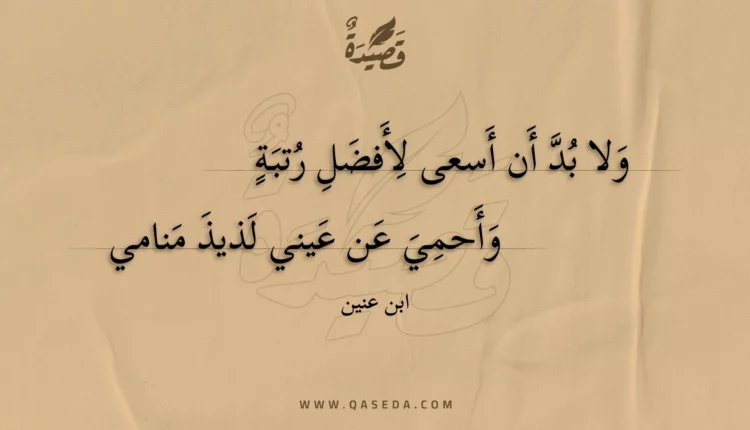 قَصِيْدَةٌ
وَلا بُدَّ أَن أَسعى لِأَفضَلِ رُتبَةٍ
وَأَحمِيَ عَن عَيني لَذيذَ مَنامي
ابن عنين
WWW.QASEDA.COM